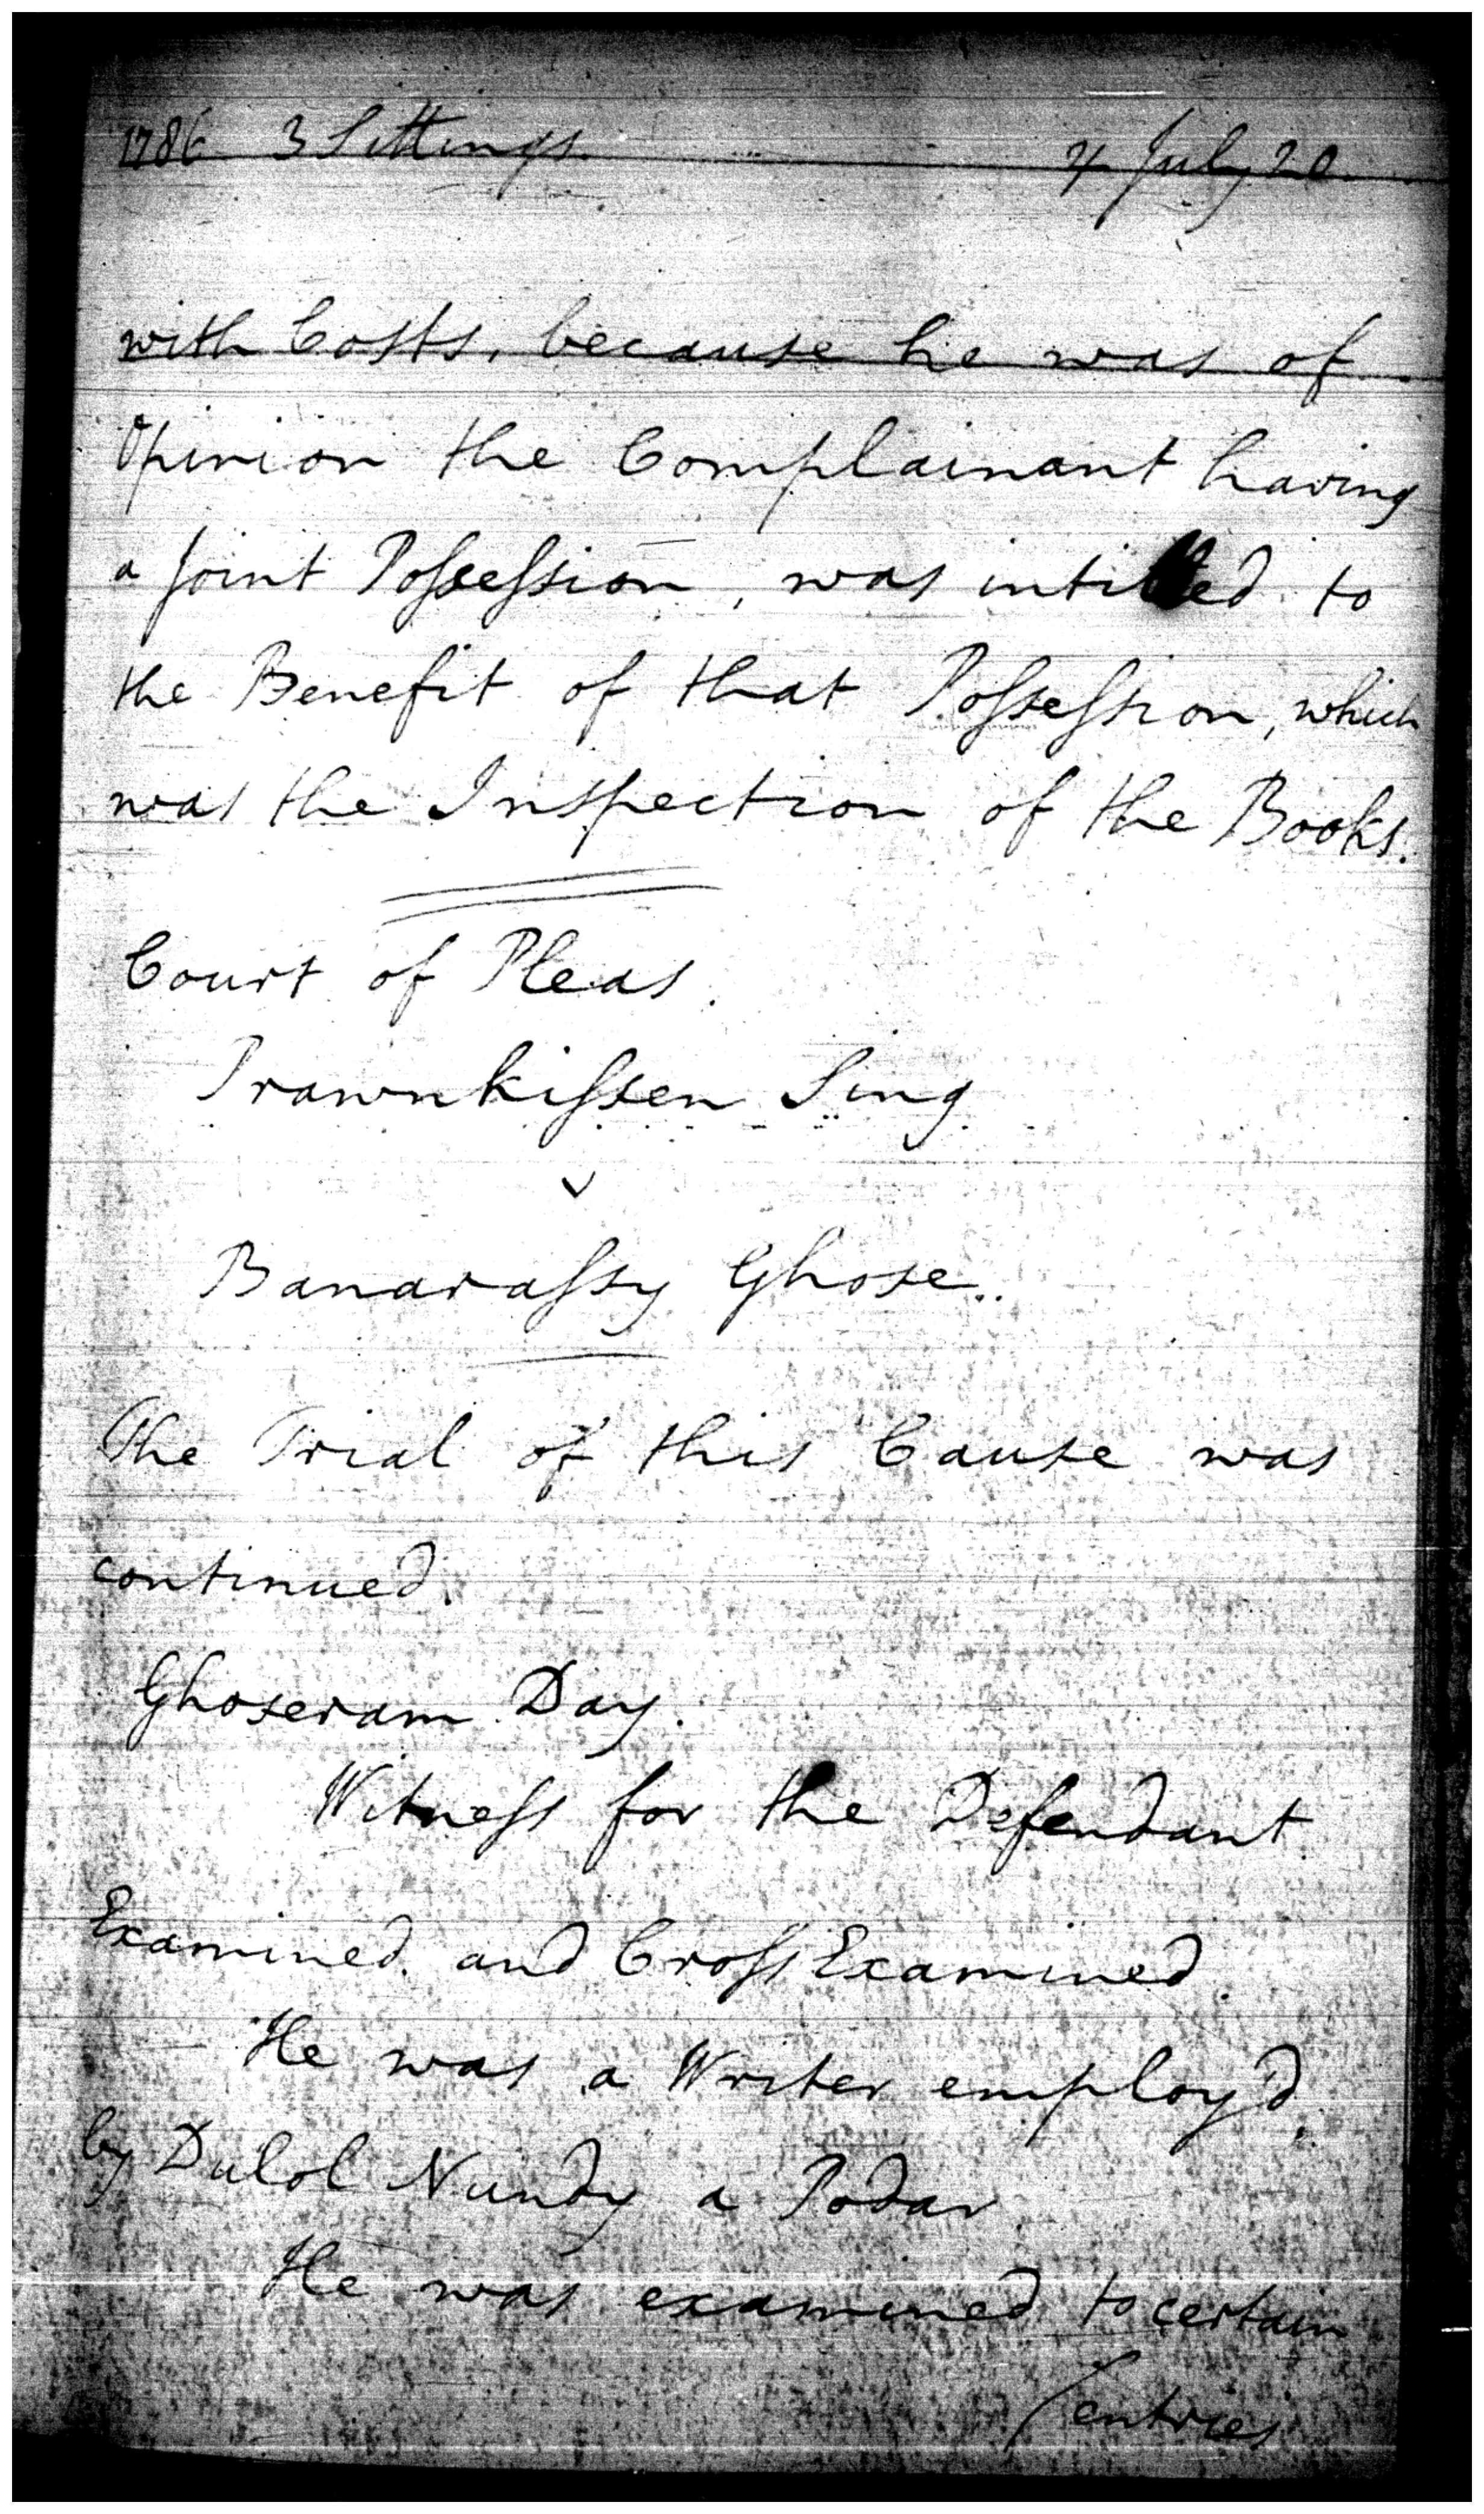 1786 3 Sittings. 4 July 20.
with Costs, because he was of
Opinion the Complainant having
a joint Possession, was intitled to
the Benefit of that Possession, which
was the Inspection of the Books.
Court of Pleas.
Prawnkissen Sing
v
Banarassy Ghose.
The Trial of this Cause was
continued.
Ghoseram Day.
Witness for the Defendant.
Examined. and Cross Examined.
He was a Writer employ'd,
by Dulol Nundy a Podar.
He was examined to certain
/entries